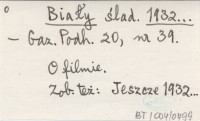 Biały ślad. 1932...
- Gaz. Podh. 20, nr 39.
O filmie.
Zob. też: Jeszcze 1932...
BT 1004/0499